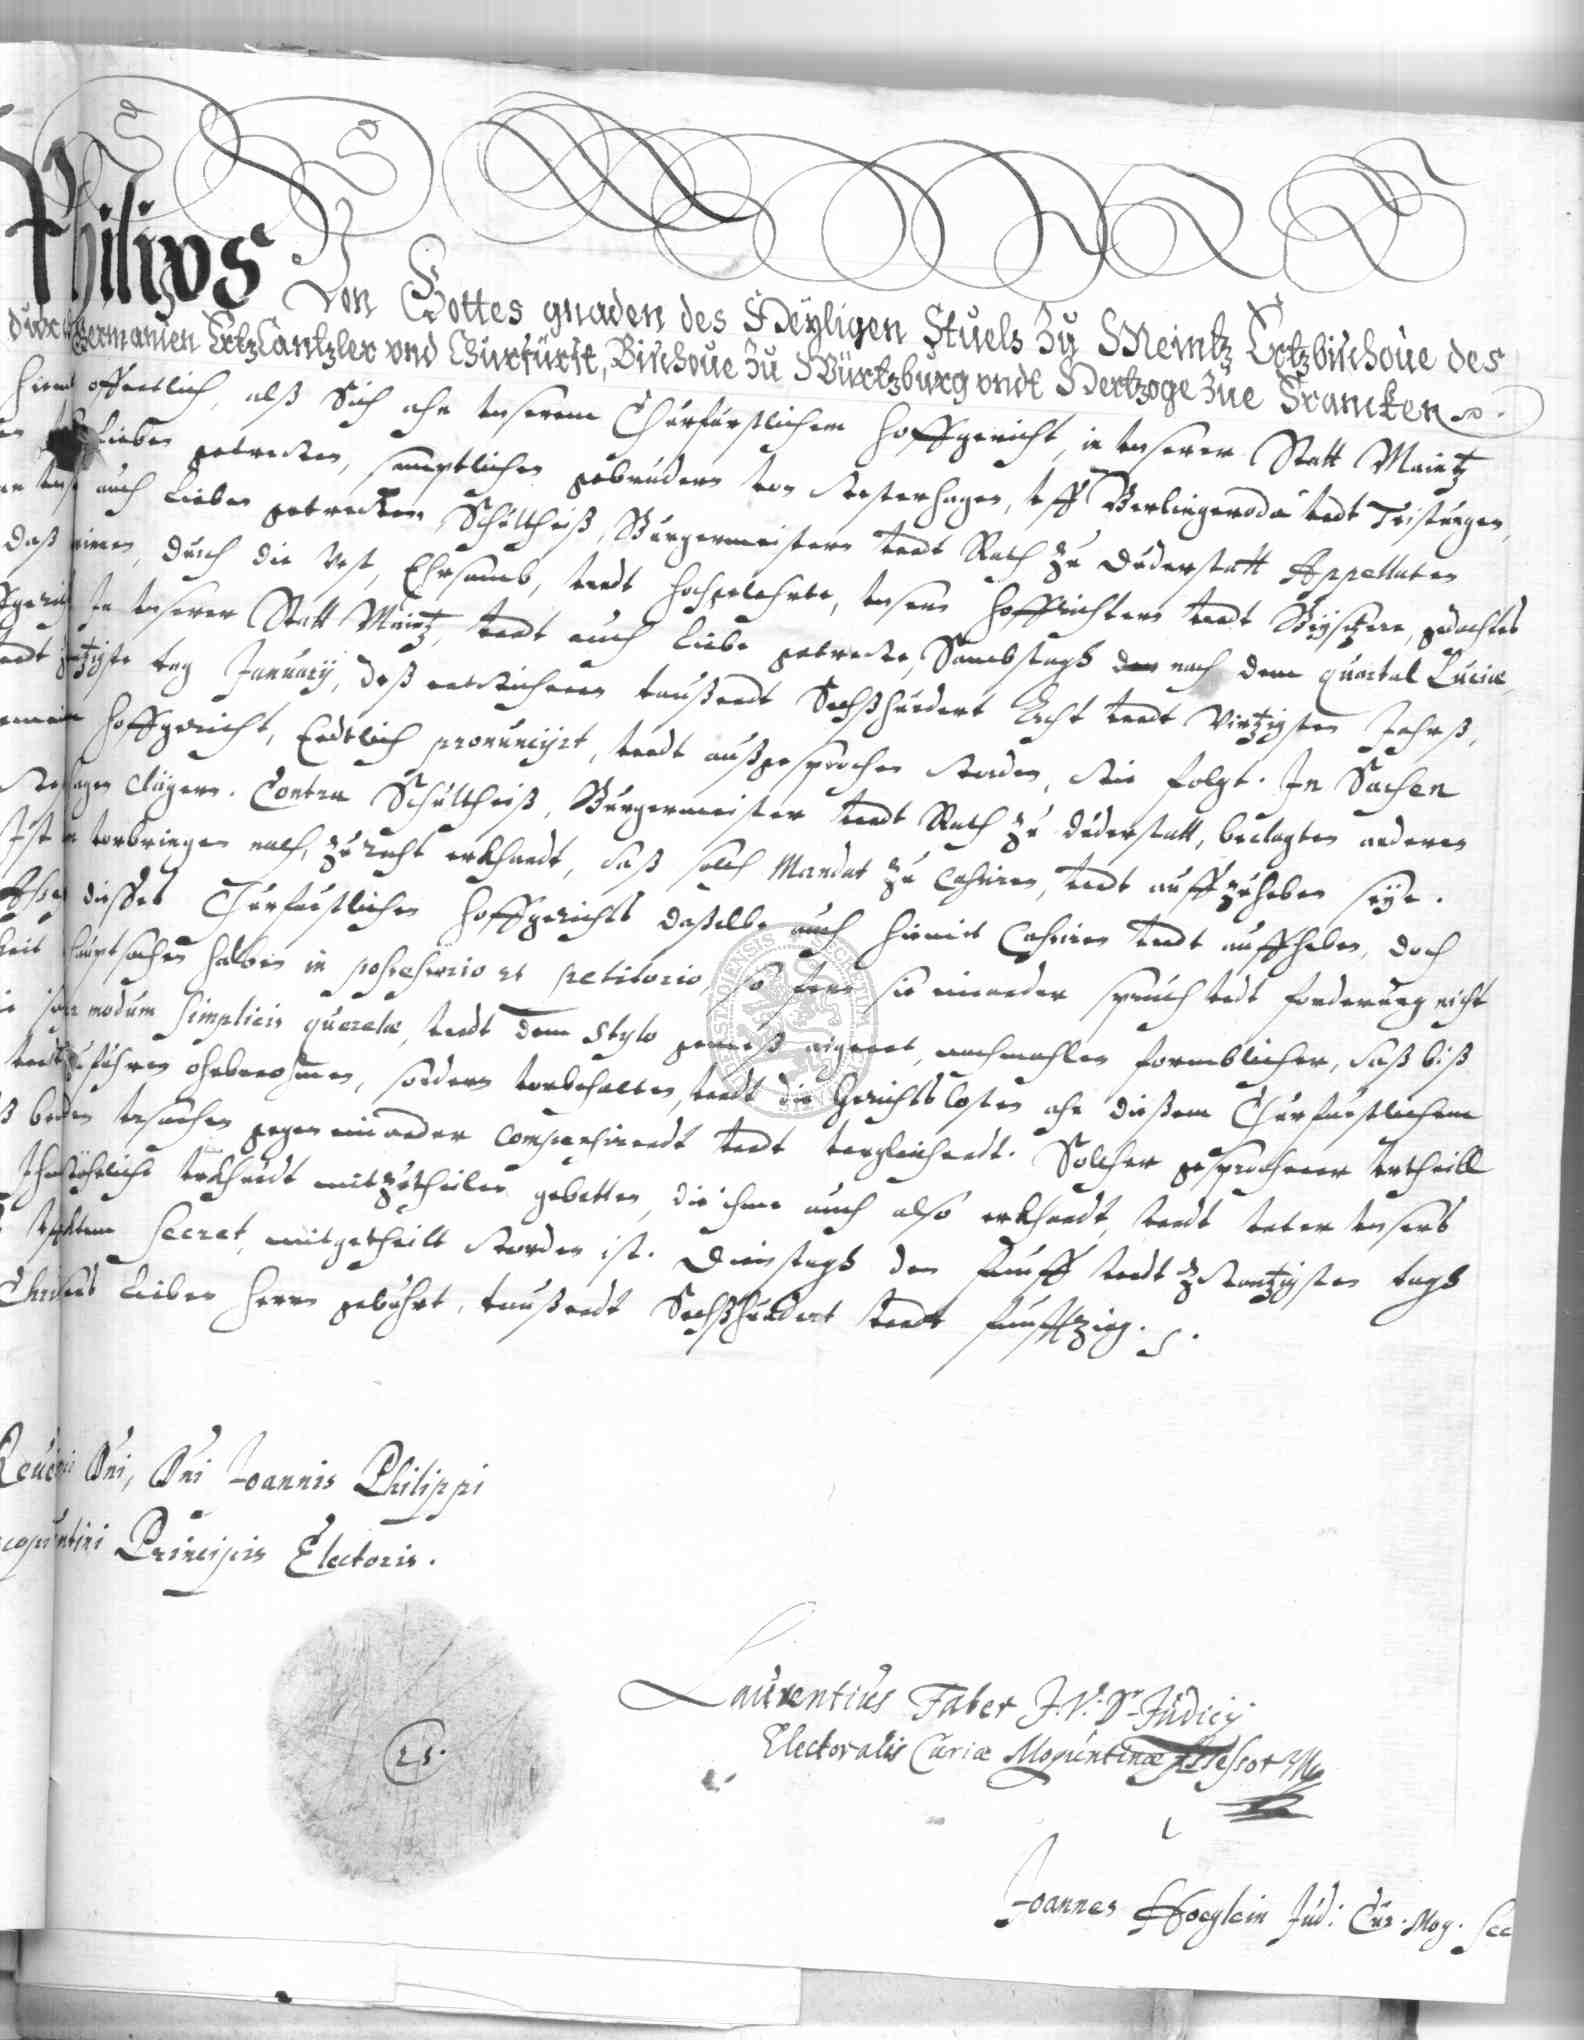 Philips Von Gottes gnaden des Heyligen Stuels Zu Meintz Ertzbischoue des
durch Germanien ErtzCantzler vnd Churfürst, Bischoue Zu Würtzburg vndt Hertzoge Zue Francken
offentlich, alß Sich ahn Unserem Churfürstlichem Hoffgericht, in Unserer Statt Maintz
Lieben getrewen, samptlichen gebrüdern von Westerhagen, vff Berlingeroda vndt Teistungen,
auch Lieben getrewen Schultheiß, Bürgermeistern vndt Rath zu Duderstatt Appellaten
Daß einen, durch die Vest, Ehrsamb, vndt hochgelehrte, Unsern Hoffrichtern vndt Beysitzere, gedachtes
In Unserer Statt Maintz, vndt auch Liebe getrewe, Sambstags den nach dem quartal Luciæ,
tag Januarij, deß entwichenen taußendt Sechßhundert Acht vndt Viertzigsten Jahrß,
Hoffgericht, Endtlich pronuncijrt, vndt außgesprochen worden, wie folgt. In Sachen
Clägern. Contra Schultheiß, Bürgermeister vndt Rath zu Duderstatt, beclagten anderen
vorbringen nach, zu recht erkhandt, daß solch Mandat zu Cassiren, vndt auffzuheben seye.
dießes Churfürstlichen Hoffgerichts daßelbe auch hiemit Cassiren vndt auffheben, doch
haubtsachen halben in possessorio et petitorio, so fern sie einander spruch vndt forderung nicht
modum simplicis querelæ, vndt dem Stylo gemeß eigenet, nachmahlen formblicher, daß biß
ohnbenohmen, sondern vorbehalten, vndt die Gerichts Costen ahn dießem Churfürstlichem
vrsachen gegen einander compensirendt vndt vergleichendt. Solcher gesprochener Vrtheill
Vrkhundt mitzutheilen gebetten, die ihme auch also erkhandt, vndt vnter Unserß
Secret, mitgetheilt worden ist. Dienstags den fünff vndt zwantzigsten tags
Lieben Herrn geburt, taußendt Sechßhundert vndt fünffzig.
Dni, Dni Joannis Philippi
Principis Electoris.
25.
Laurentius Faber J.V. Dr. Judicij
Electoralis Curiæ Moguntinæ Assessor
Joannes Hoeglein Jud: Cur. Mog. Sec